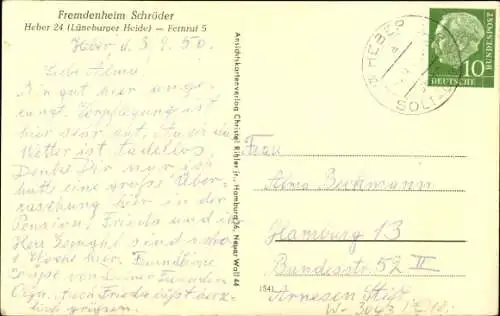 Fremdenheim Schröder
Heber 24 (Lüneburger Heide) — Fernruf 5
Heber, d. 3. 9. 56.
Liebe Alma!
Bin gut hier ange-
langt. Verpflegung ist
hier sehr gut,
Wetter ist tadellos,
Denke Dir nur ich
hatte eine große Über-
raschung hier in der
Pension, Frieda und ihr
Herr sind schon
1 Woche hier. Freundliche
Grüße von Deiner Freundin
Olga. Auch Frieda läßt herz-
lich grüßen.
Ansichtskartenverlag Christel Rihler jr., Hamburg 36, Neuer Wall 44
HEBER
SOLTAU
DEUTSCHE
BUNDESPOST
10
Frau
Alma Beckmann
Hamburg 13
Bundesstr. 52 II
Arnesen Stift
1541
W- 3043